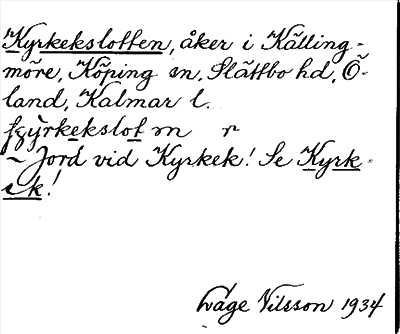 Kyrkekslotten, åker i Källing-
möre, Köping sn, Slättbo hd, Ö-
land, Kalmar l.
~ Jord vid Kyrkek! Se Kyrk-
ek!
Åge Nilsson 1934